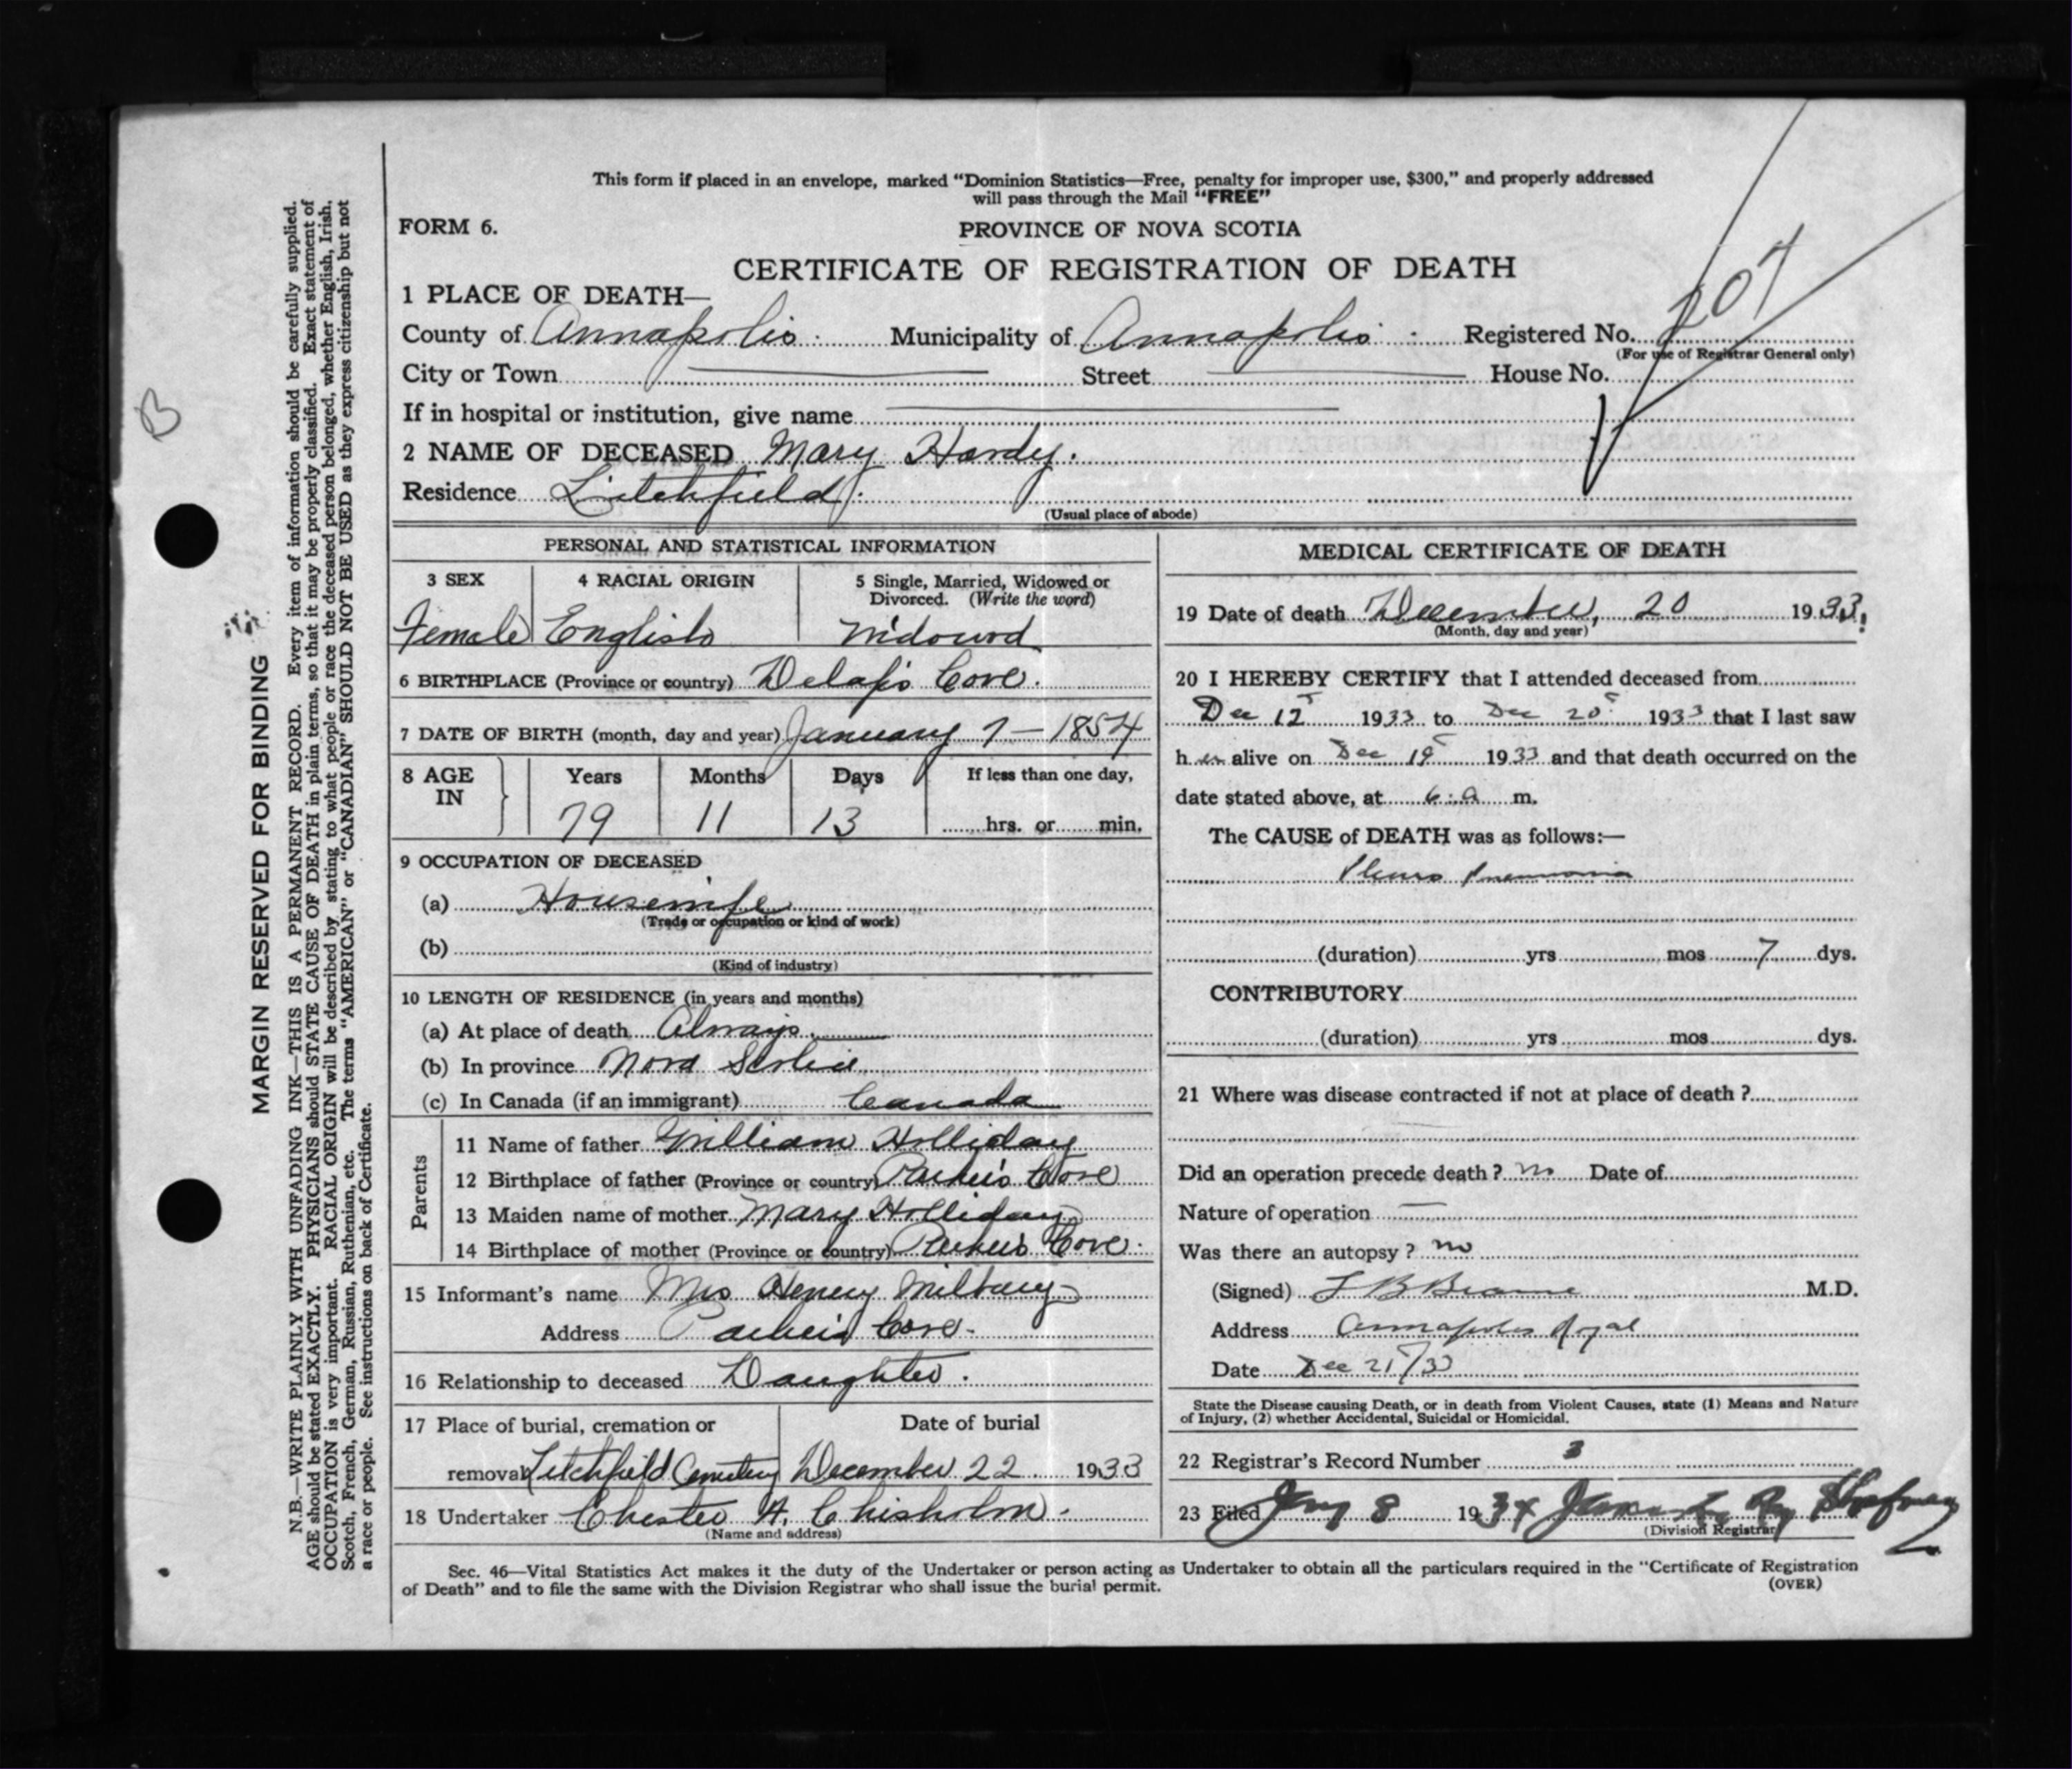 This form if placed in an envelope, marked "Dominion Statistics—Free, penalty for improper use, $300," and properly addressed
will pass through the Mail "FREE"
FORM 6.
PROVINCE OF NOVA SCOTIA
CERTIFICATE OF REGISTRATION OF DEATH
207
1 PLACE OF DEATH—
County of Annapolis. Municipality of Annapolis. Registered No.
(For use of Registrar General only)
City or Town Street House No.
If in hospital or institution, give name
2 NAME OF DECEASED Mary Hardy.
Residence Litchfield.
(Usual place of abode)
PERSONAL AND STATISTICAL INFORMATION
3 SEX 4 RACIAL ORIGIN 5 Single, Married, Widowed or
Divorced. (Write the word)
Female English Widowd
6 BIRTHPLACE (Province or country) Delap's Cove.
7 DATE OF BIRTH (month, day and year) January 7 — 1854
8 AGE IN Years Months Days If less than one day,
79 11 13 hrs. or min.
9 OCCUPATION OF DECEASED
(a) Housewife
(Trade or occupation or kind of work)
(b)
(Kind of industry)
10 LENGTH OF RESIDENCE (in years and months)
(a) At place of death Always.
(b) In province Nova Scotia
(c) In Canada (if an immigrant) Canada
Parents
11 Name of father William Holliday
12 Birthplace of father (Province or country) Parker's Cove
13 Maiden name of mother Mary Holliday
14 Birthplace of mother (Province or country) Parker's Cove.
15 Informant's name Mrs Henery Milbury
Address Parker's Cove.
16 Relationship to deceased Daughter.
17 Place of burial, cremation or Date of burial
removal Litchfield Cemetery December 22 1933
18 Undertaker Chester A. Chisholm.
(Name and address)
MEDICAL CERTIFICATE OF DEATH
19 Date of death December, 20 1933.
(Month, day and year)
20 I HEREBY CERTIFY that I attended deceased from
Dec 12 1933 to Dec 20 1933 that I last saw
her alive on Dec 19 1933 and that death occurred on the
date stated above, at 6.a m.
The CAUSE of DEATH was as follows:—
Pleuro Pneumonia
(duration) yrs mos 7 dys.
CONTRIBUTORY
(duration) yrs mos dys.
21 Where was disease contracted if not at place of death ?
Did an operation precede death ? no Date of
Nature of operation —
Was there an autopsy ? no
(Signed) L B Braine M.D.
Address Annapolis Royal
Date Dec 21/33
State the Disease causing Death, or in death from Violent Causes, state (1) Means and Nature
of Injury, (2) whether Accidental, Suicidal or Homicidal.
22 Registrar's Record Number 3
23 Filed Jany 8 1934
(Division Registrar)
Sec. 46—Vital Statistics Act makes it the duty of the Undertaker or person acting as Undertaker to obtain all the particulars required in the "Certificate of Registration
of Death" and to file the same with the Division Registrar who shall issue the burial permit.
(OVER)
B
MARGIN RESERVED FOR BINDING
N.B.—WRITE PLAINLY WITH UNFADING INK—THIS IS A PERMANENT RECORD. Every item of information should be carefully supplied.
AGE should be stated EXACTLY. PHYSICIANS should STATE CAUSE OF DEATH in plain terms, so that it may be properly classified. Exact statement of
OCCUPATION is very important. RACIAL ORIGIN will be described by stating to what people or race the deceased person belonged, whether English, Irish,
Scotch, French, German, Russian, Ruthenian, etc. The terms "AMERICAN" or "CANADIAN" SHOULD NOT BE USED as they express citizenship but not
a race or people. See instructions on back of Certificate.